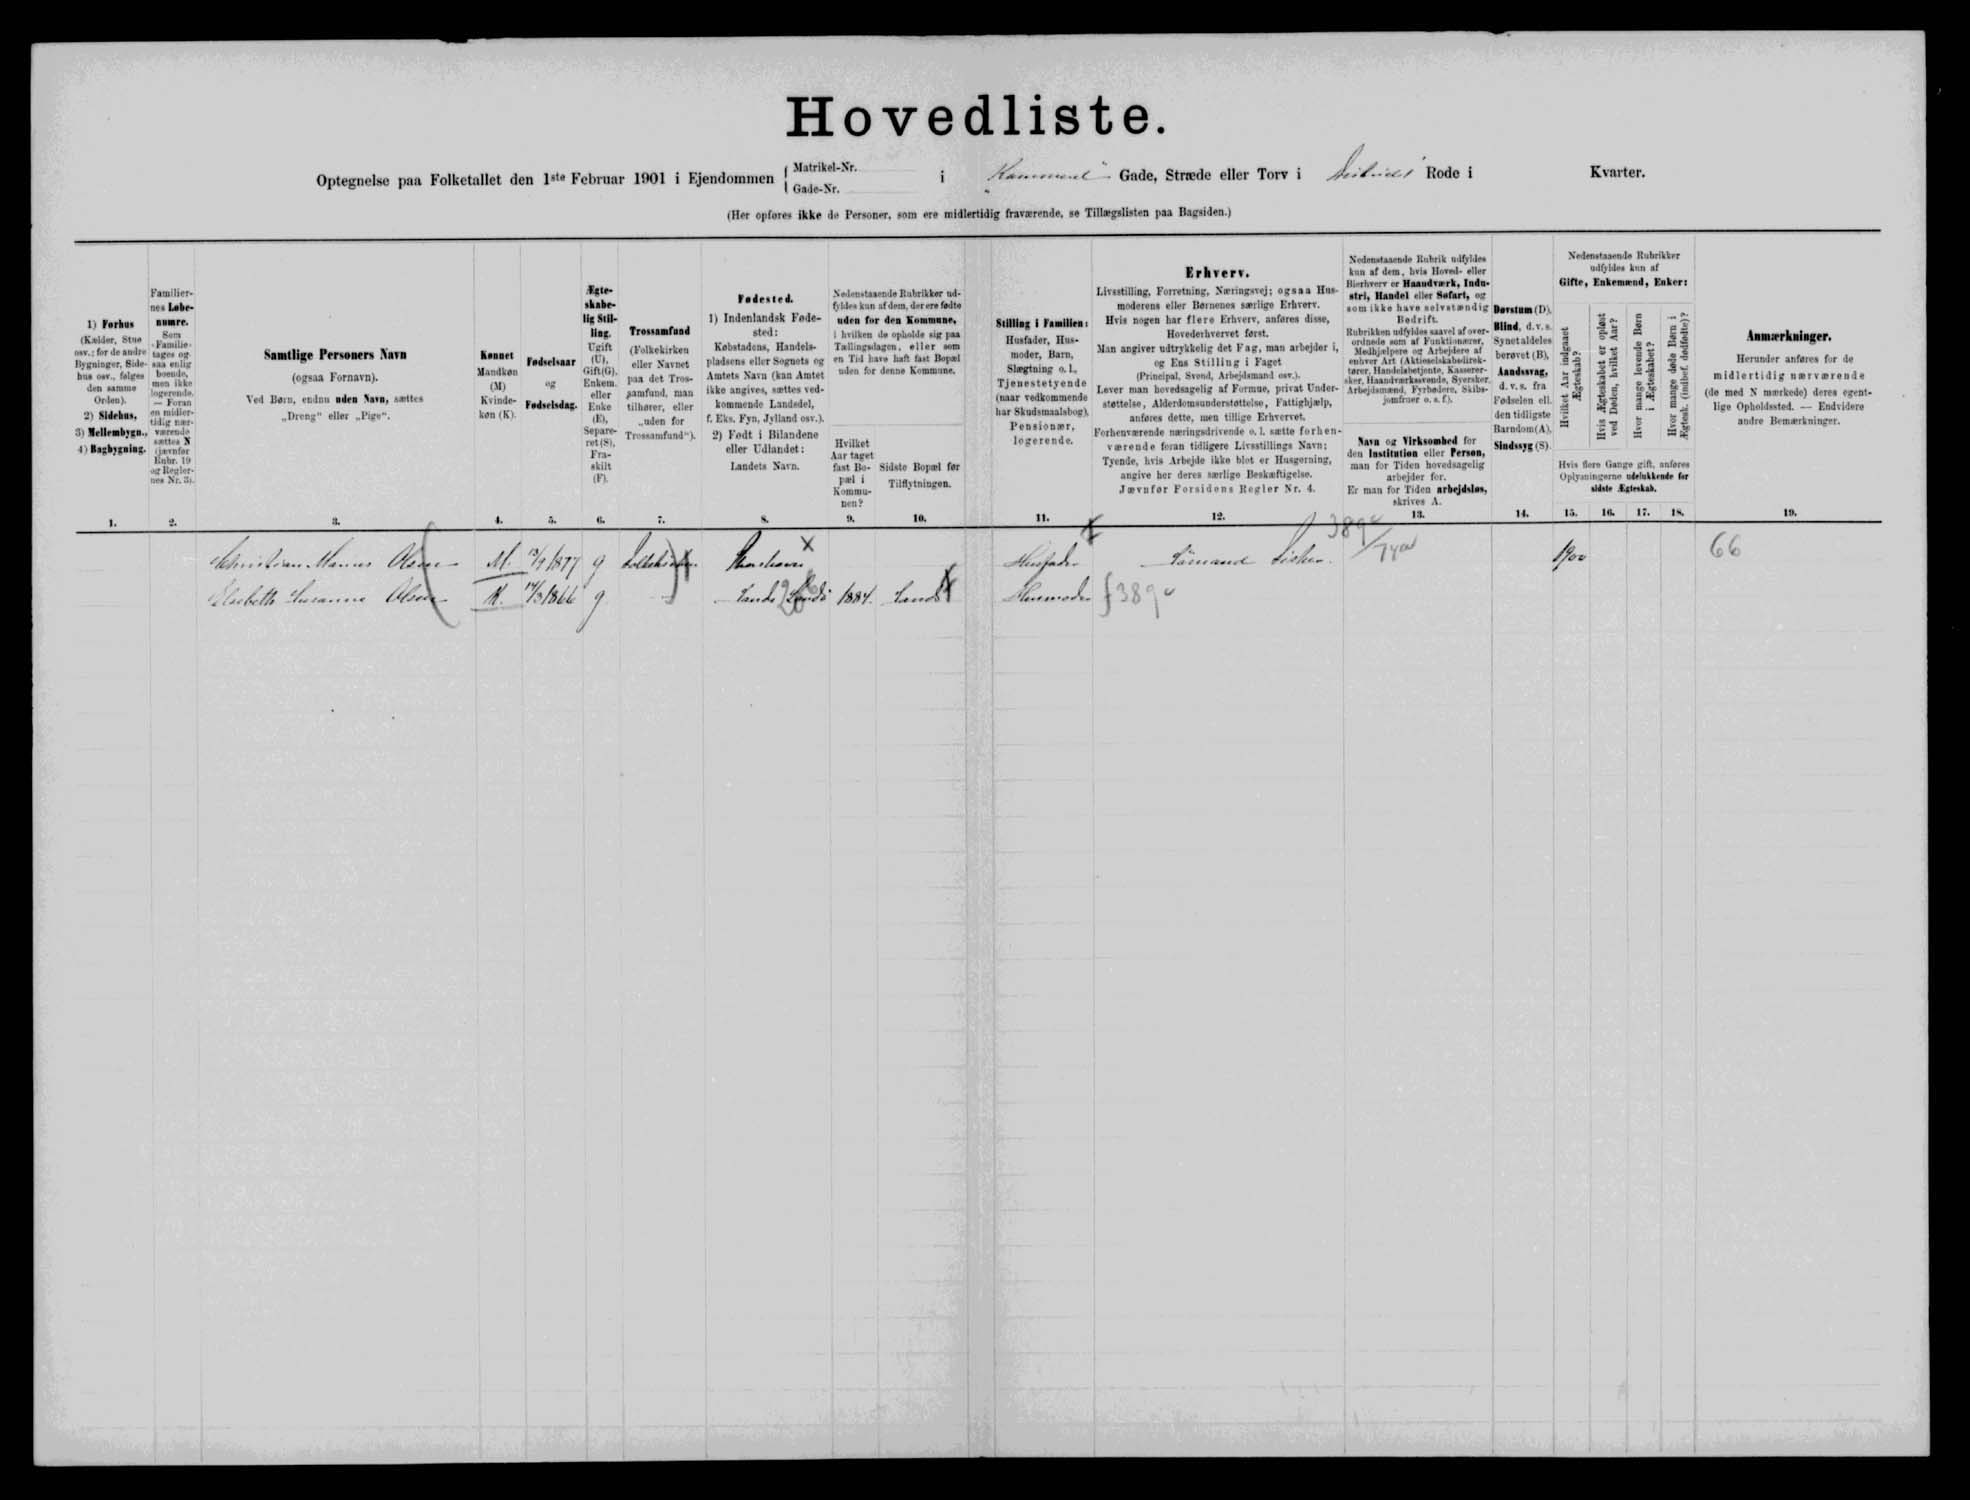 Hovedliste.
Optegnelse paa Folketallet den 1ste Februar 1901 i Ejendommen { Matrikel-Nr. i Gade, Stræde eller Torv i Rode i Kvarter.
Gade-Nr.
(Her opføres ikke de Personer, som ere midlertidig fraværende, se Tillægslisten paa Bagsiden.)
1) Forhus
(Kælder, Stue
osv.; for de andre
Bygninger, Side-
hus osv., følges
den samme
Orden).
2) Sidehus,
3) Mellembygn.,
4) Bagbygning.
Familier-
nes Løbe-
numre.
Som
Familie
tages og-
saa enlig
boende,
men ikke
logerende.
— Foran
en midler-
tidig nær-
værende
sættes N
(jævnfør
Rubr. 19
og Regler-
nes Nr. 3).
Samtlige Personers Navn
(ogsaa Fornavn).
Ved Børn, endnu uden Navn, sættes
„Dreng“ eller „Pige“.
Kønnet
Mandkøn
(M)
Kvinde-
køn (K).
Fødselsaar
og
Fødselsdag.
Ægte-
skabe-
lig Stil-
ling.
Ugift
(U),
Gift(G),
Enkem.
eller
Enke
(E),
Separe-
ret (S),
Fra-
skilt
(F).
Trossamfund
(Folkekirken
eller Navnet
paa det Tros-
samfund, man
tilhører, eller
„uden for
Trossamfund“).
Fødested.
1) Indenlandsk Føde-
sted:
Købstadens, Handels-
pladsens eller Sognets og
Amtets Navn (kan Amtet
ikke angives, sættes ved-
kommende Landsdel,
f. Eks. Fyn, Jylland osv.).
2) Født i Bilandene
eller Udlandet:
Landets Navn.
Nedenstaaende Rubrikker ud-
fyldes kun af dem, der ere fødte
uden for den Kommune,
i hvilken de opholde sig paa
Tællingsdagen, eller som
en Tid have haft fast Bopæl
uden for denne Kommune.
Hvilket
Aar taget
fast Bo-
pæl i
Kommu-
nen?
Sidste Bopæl før
Tilflytningen.
Stilling i Familien:
Husfader, Hus-
moder, Barn,
Slægtning o. l.,
Tjenestetyende
(naar vedkommende
har Skudsmaalsbog),
Pensionær,
logerende.
Erhverv.
Livsstilling, Forretning, Næringsvej; ogsaa Hus-
moderens eller Børnenes særlige Erhverv.
Hvis nogen har flere Erhverv, anføres disse,
Hovederhvervet først.
Man angiver udtrykkelig det Fag, man arbejder i,
og Ens Stilling i Faget
(Principal, Svend, Arbejdsmand osv.).
Lever man hovedsagelig af Formue, privat Under-
støttelse, Alderdomsunderstøttelse, Fattighjælp,
anføres dette, men tillige Erhvervet.
Forhenværende næringsdrivende o. l. sætte forhen-
værende foran tidligere Livsstillings Navn;
Tyende, hvis Arbejde ikke blot er Husgerning,
angive her deres særlige Beskæftigelse.
Jævnfør Forsidens Regler Nr. 4.
Nedenstaaende Rubrik udfyldes
kun af dem, hvis Hoved- eller
Bierhverv er Haandværk, Indu-
stri, Handel eller Søfart, og
som ikke have selvstændig
Bedrift.
Rubrikken udfyldes saavel af over-
ordnede som af Funktionærer,
Medhjælpere og Arbejdere af
enhver Art (Aktieselskabsdirek-
tører, Handelsbetjente, Kasserer-
sker, Haandværkssvende, Syersker,
Arbejdsmænd, Fyrbødere, Skibs-
jomfruer o. s. f.).
Navn og Virksomhed for
den Institution eller Person,
man for Tiden hovedsagelig
arbejder for.
Er man for Tiden arbejdsløs,
skrives A.
Døvstum (D),
Blind, d. v. s.
Synet aldeles
berøvet (B),
Aandssvag,
d. v. s. fra
Fødselen ell.
den tidligste
Barndom (A),
Sindssyg (S).
Nedenstaaende Rubrikker
udfyldes kun af
Gifte, Enkemænd, Enker:
Hvilket Aar indgaaet
Ægteskab?
Hvis Ægteskabet er opløst
ved Døden, hvilket Aar?
Hvor mange levende Børn
i Ægteskabet?
Hvor mange døde Børn i
Ægtesk. (indbef. dødfødte)?
Hvis flere Gange gift, anføres
Oplysningerne udelukkende for
sidste Ægteskab.
Anmærkninger.
Herunder anføres for de
midlertidig nærværende
(de med N mærkede) deres egent-
lige Opholdssted. — Endvidere
andre Bemærkninger.
1. 2. 3. 4. 5. 6. 7. 8. 9. 10. 11. 12. 13. 14. 15. 16. 17. 18. 19.
Christian Manus Olsen M. 13/9 1877 g Folkekirken Thorshavn Husfader Sömand Fisker. 1900 66
Elsebeth Susanne Olsen K. 14/3 1866 g Sands Sandö 1884. Sand Husmoder 389